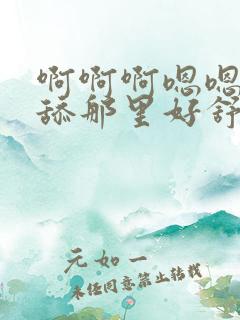 啊啊啊嗯嗯
舔那里好舒
元如一
未经同意禁止转载